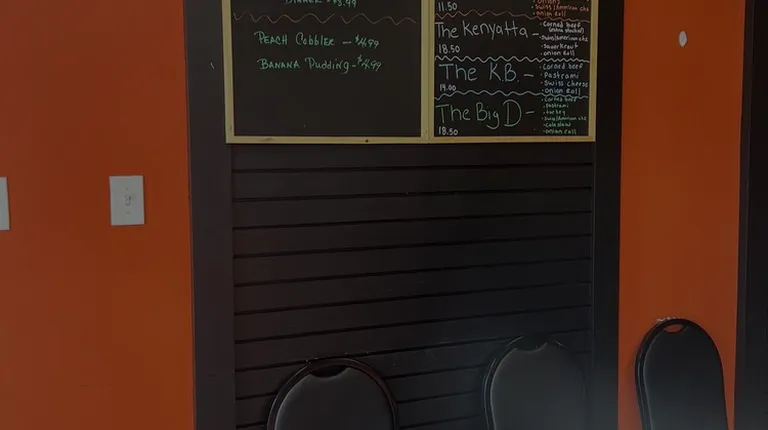 DINNER - $3.99
PEACH Cobbler - $4.99
BANANA Pudding - $4.99
11.50
• onions
• Swiss/American chz
• onion Roll
The Kenyatta -
18.50
• Corned beef
• Swiss/American chz
• Sauerkraut
• onion roll
The K.B. -
14.00
• Corned beef
• Pastrami
• Swiss Cheese
• onion Roll
The Big D -
18.50
• Corned beef
• Pastrami
• turkey
• Swiss/American chz
• Coleslaw
• onion roll